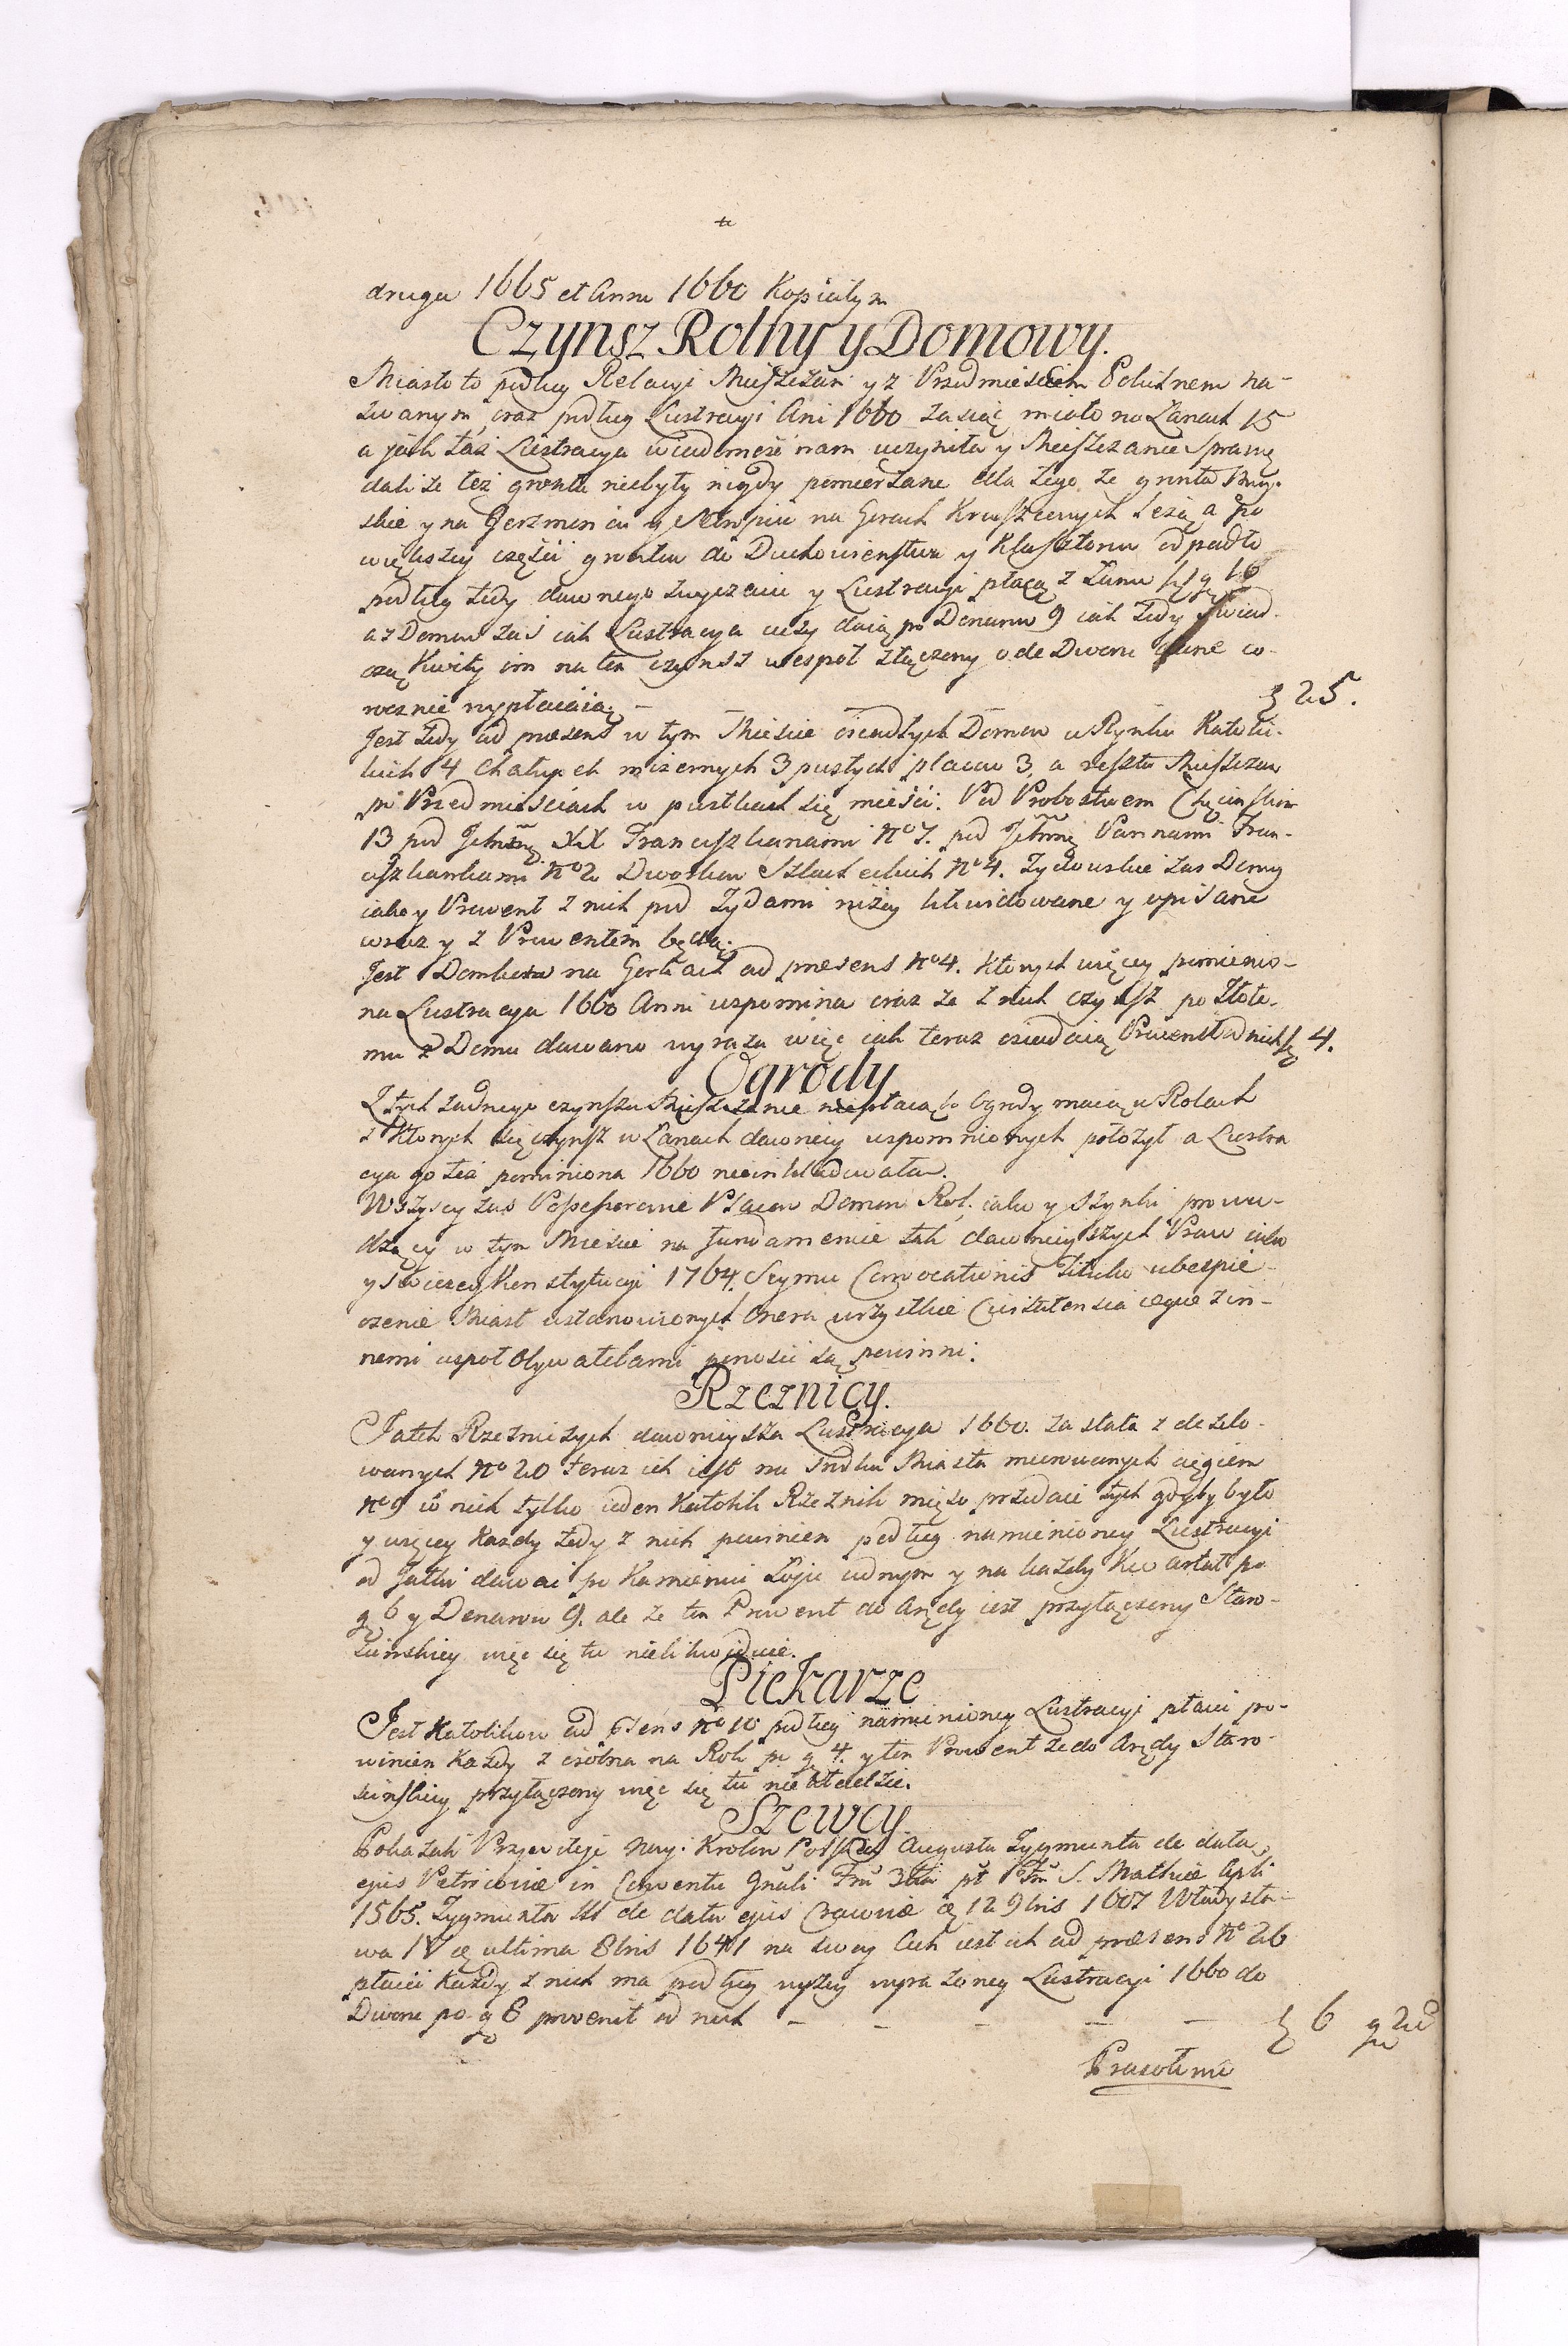 druga 1665 et Anni 1660 Kopiałym
Czynsz Rolny y Domowy.
Miasto to podług Relacyi Mieszczan y z Przedmiesciem Pokutnem na-
zwanym, oraz podług Lustracyi Ani 1660 zasiąść miało na Łanach 15
a jach taż Lustracya wiadomość nam uczyniła y Mieszczanie Sprawę
dali że też grunta niebyły nigdy pomierzane dla tego że grunta Miey-
skie y na Gorach Kruszcowych Leżą a po
większey części gruntu do Duchowieństwa y Klasztoru odpadło
podług tedy dawnego zwyczaiu y Lustracyi płacą z Łanu
a z Domu zaś iak Lustracya uczy daią po Denarow 9 iak tedy świad-
czą Kwity im na ten czynsz wespoł złączony ode Dworu dane co-
rocznie wypłacaią. — 25.
Jest tedy ad præsens w tym Mieście osiadłych Domow w Rynku Katolic-
kich 4 Chałupek mizernych 3 pustych placow 3, a reszta Mieszczan
po Przedmieściach w pustkach się mieści: Pod Probostwem Chęcińskim
13 pod Jchmę XX Franciszkanami No 7. pod Jchmę Pannami Fran-
ciszkankami No 2 Dworkow Szlacheckich No 4. Żydowskie zas Domy
iako y Prowent z nich pod Żydami niżey likwidowane y opisane
wraz y z Prowentem będą.
Jest Domkow na Gorkach ad præsens No 4. Ktorych więcey pomienio-
na Lustracya 1660 Anni wspomina oraz że z nich czynsz po złote-
mu z Domu dawano wyraża więc iak teraz osiadaią Prowent z nich 4.
Ogrody
Z tych żadnego czynszu Mieszczanie niepłacą bo Ogrody maią w Rolach
z Ktorych się czynsz w Łanach dawniey wspomnionych położył a Lustra
cya go też pominiona 1660 nieinkludowała.
Wszyscy zas Possessorowie Placow Domow Rol. iako y Szynki prowa-
dzący w tym Mieście na fundamencie tak dawnieyszych Praw iako
y Swieżey Konstytucyi 1764. Seymu Convocationis Titulo ubespie-
czenie Miast ustanowionych Onera wszystkie Civitatensia æque z in-
nemi wspoł Obywatelami ponosić są powinni.
Rzeznicy.
Jatek Rzezniczych dawnieysza Lustracya 1660. zastała z dezelo-
wanych No 20 teraz ich iest na środku Miasta murowanych ciągiem
No 9 w nich tylko ieden Katolik Rzeznik mięso przedaie tych gdyby było
y więcey Każdy tedy z nich powinien podług namienioney Lustracyi
od Jatki dawać po Kamieniu Łoju iednym y na każdy Kwartał po
g 6 y Denarow 9. ale że ten Prowent do Arędy iest przyłączony Staro-
zcińskiey więc się tu nielikwiduie.
Piekarze
Jest Katolikow ad Psens No 10 podług namienioney Lustracyi płacić po-
winien Każdy z osobna na Rok po g 4. y ten Prowent że do Arędy Staro-
scińskiey przyłączony więc się tu nie kładzie.
Szewcy
Pokazali Przywileje Nay: Krolow Polskich Augusta Zygmunta de data
ejus Petricoviæ in Conventu Gnali Fria 3tia pt Ftm S. Mathiæ Apli
1565. Zygmunta III de data ejus Cracoviæ 12 9bris 1607 Władysła-
wa IV ultima 8bris 1641 na swoy Cech iest ich ad præsens No 26
płacić Każdy z nich ma podług wyżey wyrażoney Lustracyi 1660 do
Dworu po g 8 provenit od nich — — — — — 6 g 28
Prasołowie